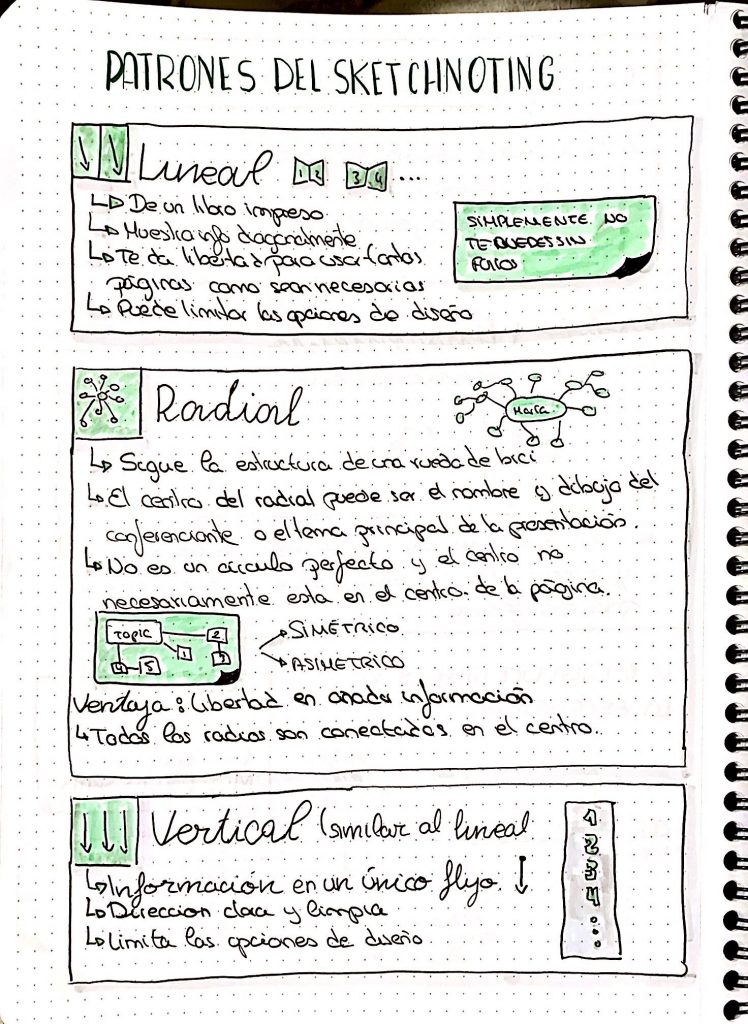 PATRONES DEL SKETCHNOTING
Lineal 1 2 3 4 ...
De un libro impreso
Muestra info diagonalmente
Te da libertad para usar tantas
páginas como sean necesarias
Puede limitar las opciones de diseño
SIMPLEMENTE NO
TE QUEDES SIN
FOLIOS
Radial
Sigue la estructura de una rueda de bici
El centro del radial puede ser el nombre y dibujo del
conferenciante o el tema principal de la presentación.
No es un círculo perfecto y el centro no
necesariamente esta en el centro de la página.
TOPIC
2
1
3
4
5
SIMÉTRICO
ASIMETRICO
Ventaja: libertad en añadir información
Todos los radios son conectados en el centro.
Vertical (similar al lineal
Información en un único flujo.
Direccion clara y limpia
Limita las opciones de diseño
1
2
3
4